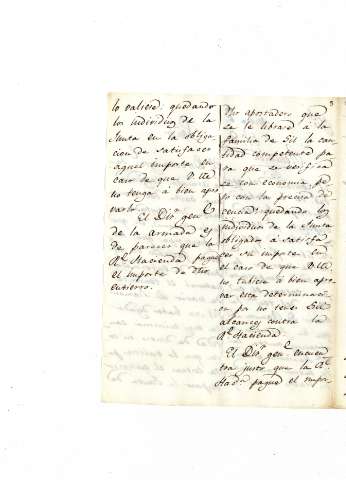 lo valiere, quedando
los individuos de la
Junta en la obliga
cion de satisfacer
aquel importe en
caso de que V.M.
no tenga á bien apro
varlo.
El Dtor. gen.l
de la armada es
de parecer que la
R.l Hacienda pague
el importe de dho
entierro.
Dho apostadero que
se le librase á la
familia de Gil la can
tidad competente pa
ra que se verifica
se con economia, pe
ro con la precisa de
cencia; quedando los
individuos de la Junta
obligados á satisfa
cer su importe en
el caso de que V.M.
no tubiese á bien apro
var esta determinaci
on por no tener Gil
alcances contra la
R.l Hacienda.
El Dtor. gen.l encuen
tra justo que la R.l
Had.a pague el impor